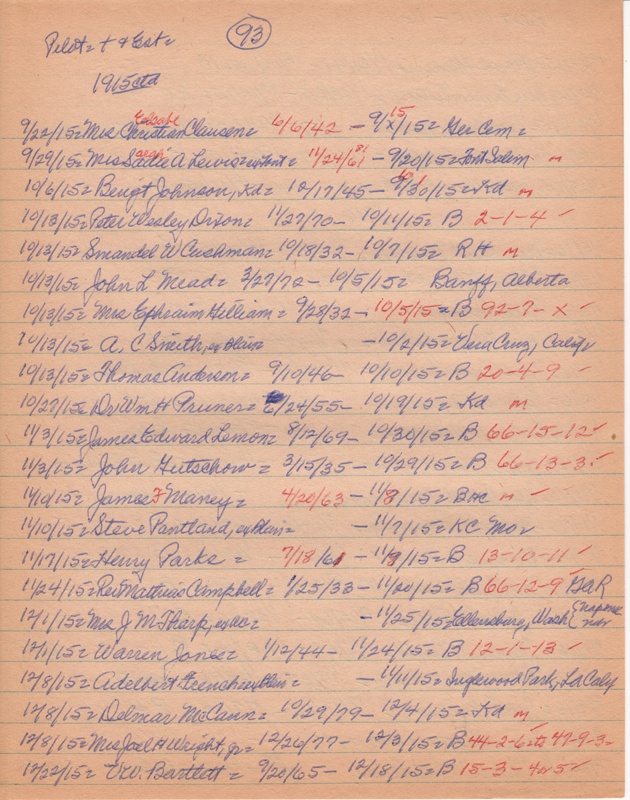 93
Pilot = + & Est =
1915 ctd
9/22/15 = Mrs Christian Clausen = 6/6/42 - 9/15/15 = Ger Cem =
9/29/15 = Mrs A Lewis = 11/24/61 - 9/20/15 = Font Salem m
10/6/15 = Bengt Johnson, Kd = 12/17/45 - /30/15 = Kd m
10/13/15 = Peter Wesley Dixon = 11/27/70 - 10/11/15 = B 2-1-4 ✓
10/13/15 = Smandel W Cushman = 10/18/32 - 10/7/15 = RH m
10/13/15 = John L Mead = 3/27/72 - 10/5/15 = Banff, Alberta
10/13/15 = Mrs Ephraim Gilliam = 9/28/32 - 10/5/15 = B 92-7-X ✓
10/13/15 = A. C Smith, ex Blair = - 10/2/15 = Vera Cruz, Calif
10/13/15 = Thomas Anderson = 9/10/46 - 10/10/15 = B 20-4-9 ✓
10/27/15 = Dr Wm H Pruner = 6/24/55 - 10/19/15 = Kd m
11/3/15 = James Edward Lemon = 8/12/69 - 10/30/15 = B 66-15-12 ✓
11/3/15 = John Gutschow = 3/15/35 - 10/29/15 = B 66-13-3 ✓
11/10/15 = James F Maney = 4/20/63 - 11/8/15 = Bac m ✓
11/10/15 = Steve Pantland, ex Blair = - 11/7/15 = KC Mo
11/17/15 = Henry Parks = 7/18/61 - 11/9/15 = B 13-10-11 ✓
11/24/15 = Rev Mathias Campbell = 1/25/33 - 11/20/15 = B 66-12-9 ✓ GaR
12/1/15 = Mrs J M Tharp, ex = - 11/25/15 = Ellensburg, Wash
12/1/15 = Warren Jones = 1/12/44 - 11/24/15 = B 12-1-13 ✓
12/8/15 = Adelbert French ex Blair = - 11/11/15 = Inglewood Park, La Calif
12/8/15 = Delmar McCann = 10/29/79 - 12/4/15 = Kd m
12/8/15 = Mrs Joel H Wright, Jr = 12/26/77 - 12/3/15 = B 44-2-6 47-9-3 -
12/22/15 = V.W. Bartlett = 9/20/65 - 12/18/15 = B 15-3-4 or 5 ✓